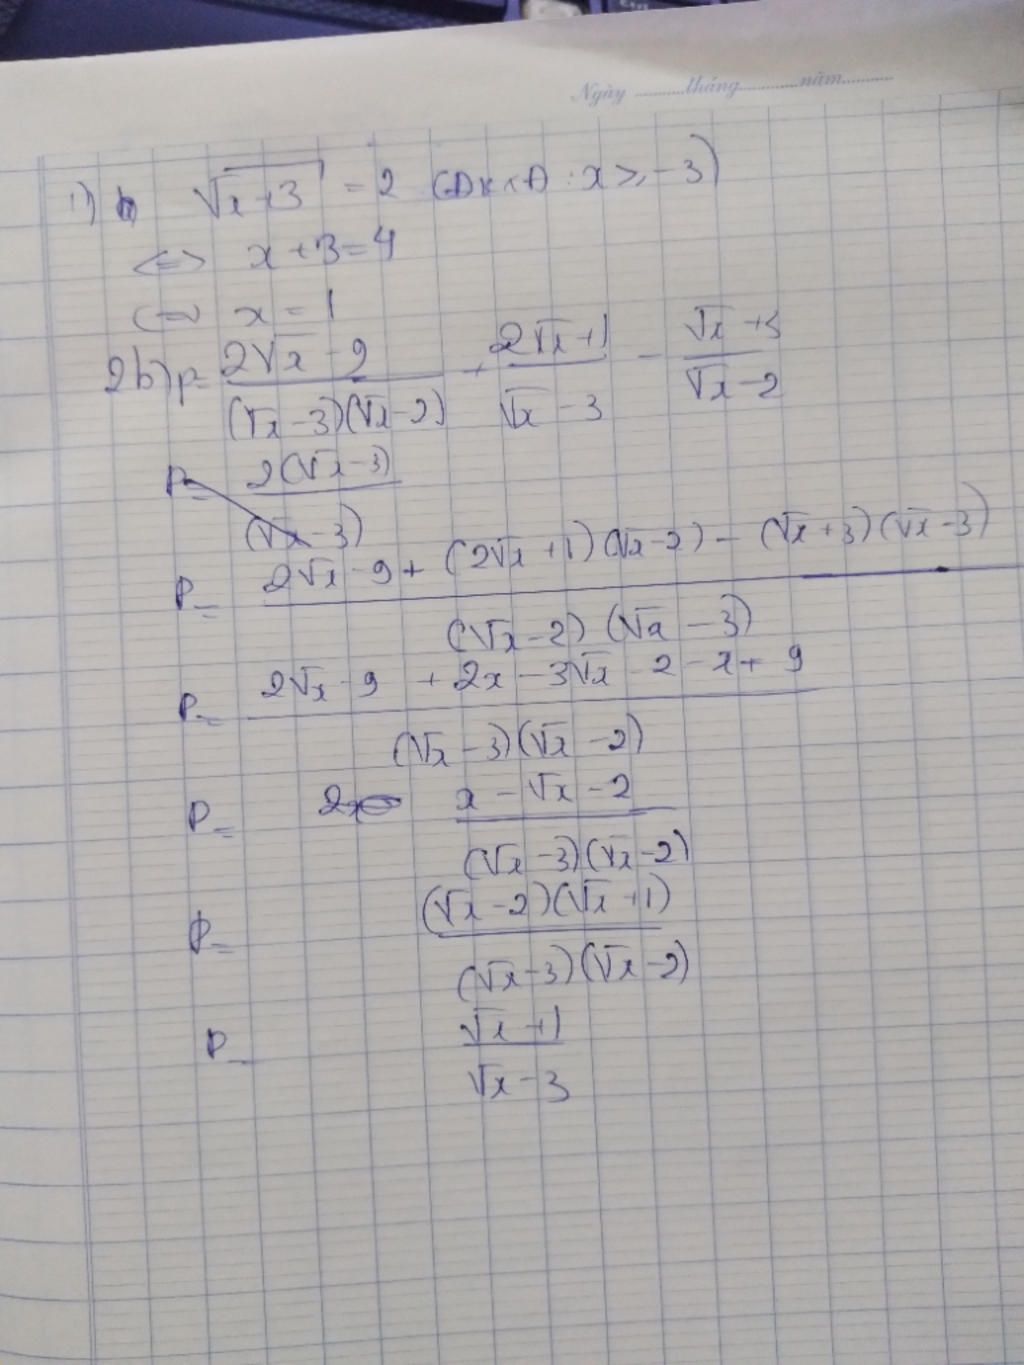 Ngày ..........tháng............năm...........
1) √(x+3) = 2 (ĐKXĐ : x ≥ -3)
<=> x + 3 = 4
<=> x = 1
2b) P = (2√x - 9)/((√x - 3)(√x - 2)) + (2√x + 1)/(√x - 3) - (√x + 3)/(√x - 2)
P = 2(√x - 3)/(√x - 3)
P = (2√x - 9 + (2√x + 1)(√x - 2) - (√x + 3)(√x - 3))/((√x - 2)(√x - 3))
P = (2√x - 9 + 2x - 3√x - 2 - x + 9)/((√x - 3)(√x - 2))
P = (x - √x - 2)/((√x - 3)(√x - 2))
P = ((√x - 2)(√x + 1))/((√x - 3)(√x - 2))
P = (√x + 1)/(√x - 3)